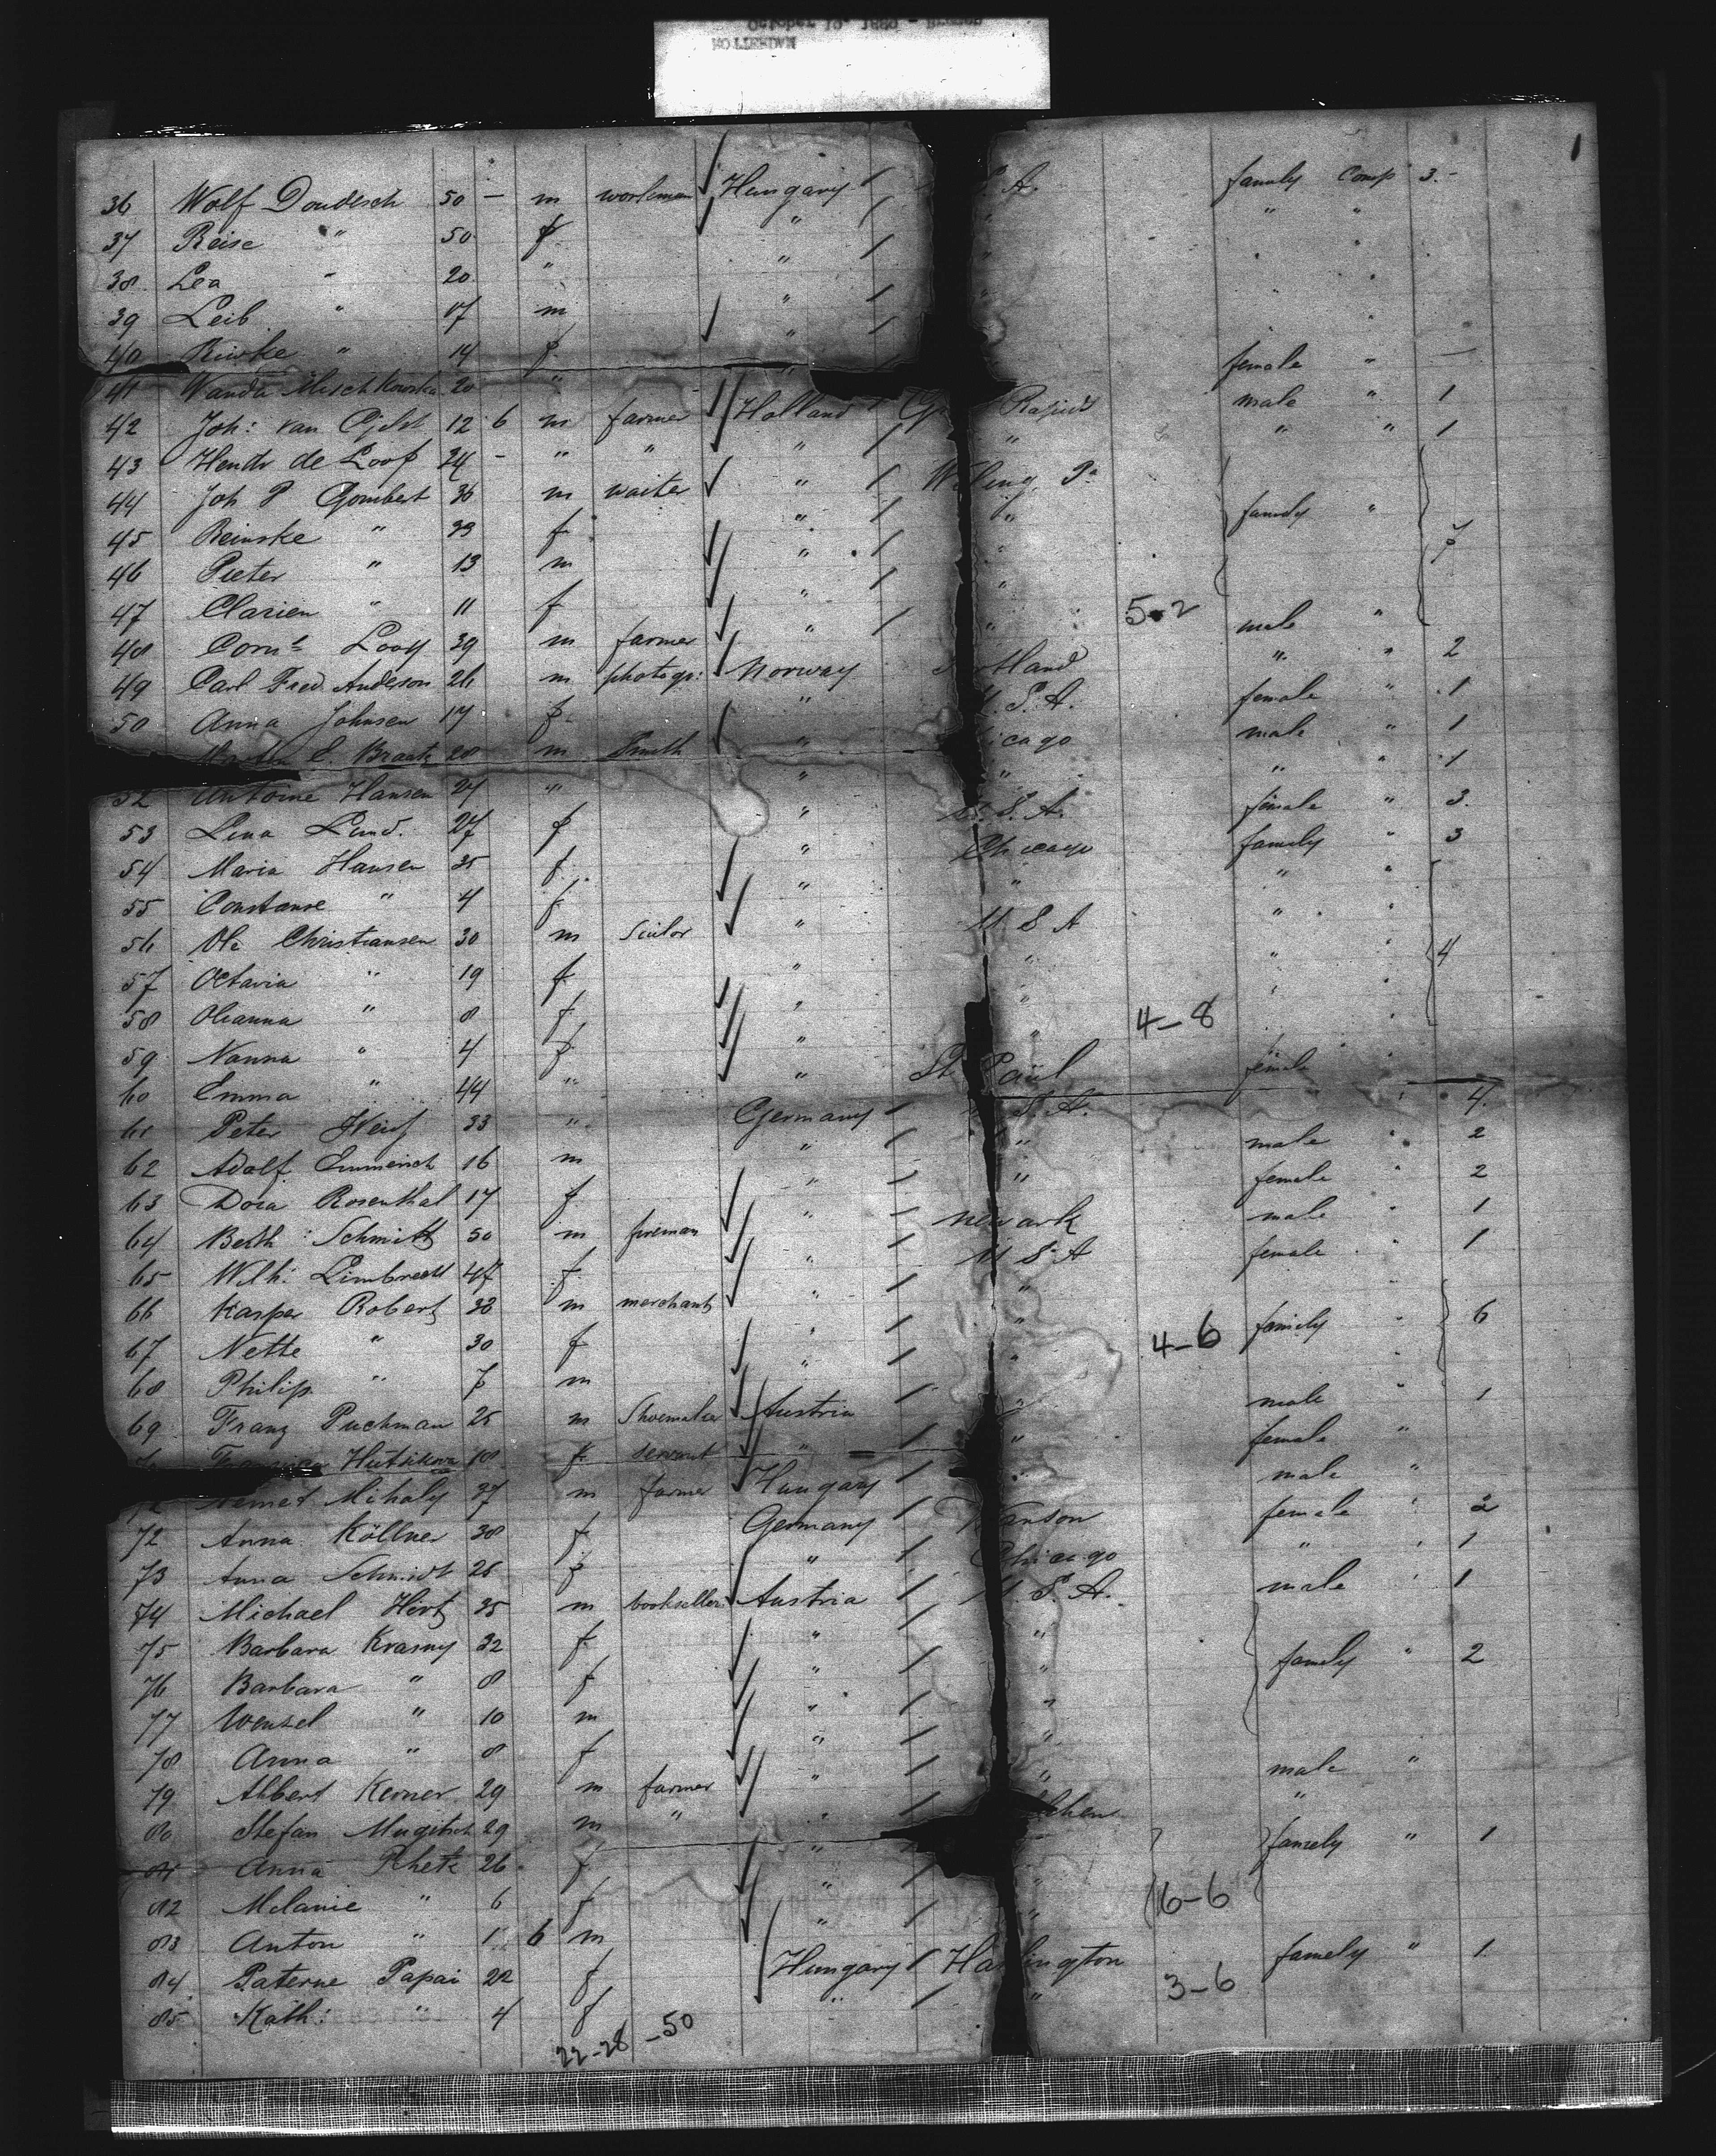 ROTTERDAM
October 19, 1889 - Bremen
36 Wolf Doudesch 50 - m workman Hungary S. A. family Comp 3.-
37 Reise " 50 f " " " "
38 Lea " 20 " " "
39 Leib " 17 m " "
40 Riwke " 14 f "
41 Wanda Mischkowska 20 " " female " —
42 Joh: van 12 6 m farmer Holland Rapids male " 1
43 Hendr de Loof 24 - " " " " " " 1
44 Joh P Gombert 36 m waiter " "
45 Reinske " 33 f " " family "
46 Pieter " 13 m " " 7
47 Clarien " 11 f " "
48 Corns Looy 39 m farmer " " 5-2 male "
49 Carl Fred. Anderson 26 m photogr: Norway rtland " " 2
50 Anna Johnsen 17 f " S. A. female " 1
E. Braatz 28 m Smith " icago male " 1
52 Antoine Hansen 27 " " " " " 1
53 Lina Lund. 27 f " U. S. A. female " 3.
54 Maria Hansen 35 f " Chicago family " 3
55 Constanse " 4 f " " " "
56 Ole Christiansen 30 m Sailor " U S A " "
57 Octavia " 19 f " " " " 4
58 Oleanna " 8 f " " "
59 Nanna " 4 f " " 4-8
60 Emma " 44 " " St Paul female "
61 Peter 33 " Germany S. A. " 4.
62 Adolf Emmerich 16 m " " male " 2
63 Dora Rosenthal 17 f " " female " 2
64 Berth: Schmitt 50 m fireman " Newark male " 1
65 Wilh: Limbrecht 47 f " U S A female " 1
66 Kasper Robert 38 m merchant " "
67 Nette " 30 f " " 4-6 family " 6
68 Philip " 7 m " "
69 Franz Puchman 25 m Shoemaker Austria " male " 1
Hutsikowa 18 f servant " " female "
Nemet Mihaly 37 m farmer Hungary " male "
72 Anna Köllner 38 f Germany female " 2
73 Anna Schmidt 25 f " Chicago " " 1
74 Michael Hirt 35 m bookseller Austria U. S. A. male " 1
75 Barbara Krasny 32 f " "
76 Barbara " 8 f " " family " 2
77 Wenzel " 10 m " "
78 Anna " 8 f " "
79 Albert Kerner 29 m farmer " " male "
80 Stefan Mugitsch 29 m " " "
81 Anna Rhetz 26 f " family " 1
82 Melanie " 6 f " "
83 Anton " 1 6 m " " 6-6
84 Paterne Papai 22 f Hungary Harlington family " 1
85 Kath: " 4 f " " 3-6
22-28-50